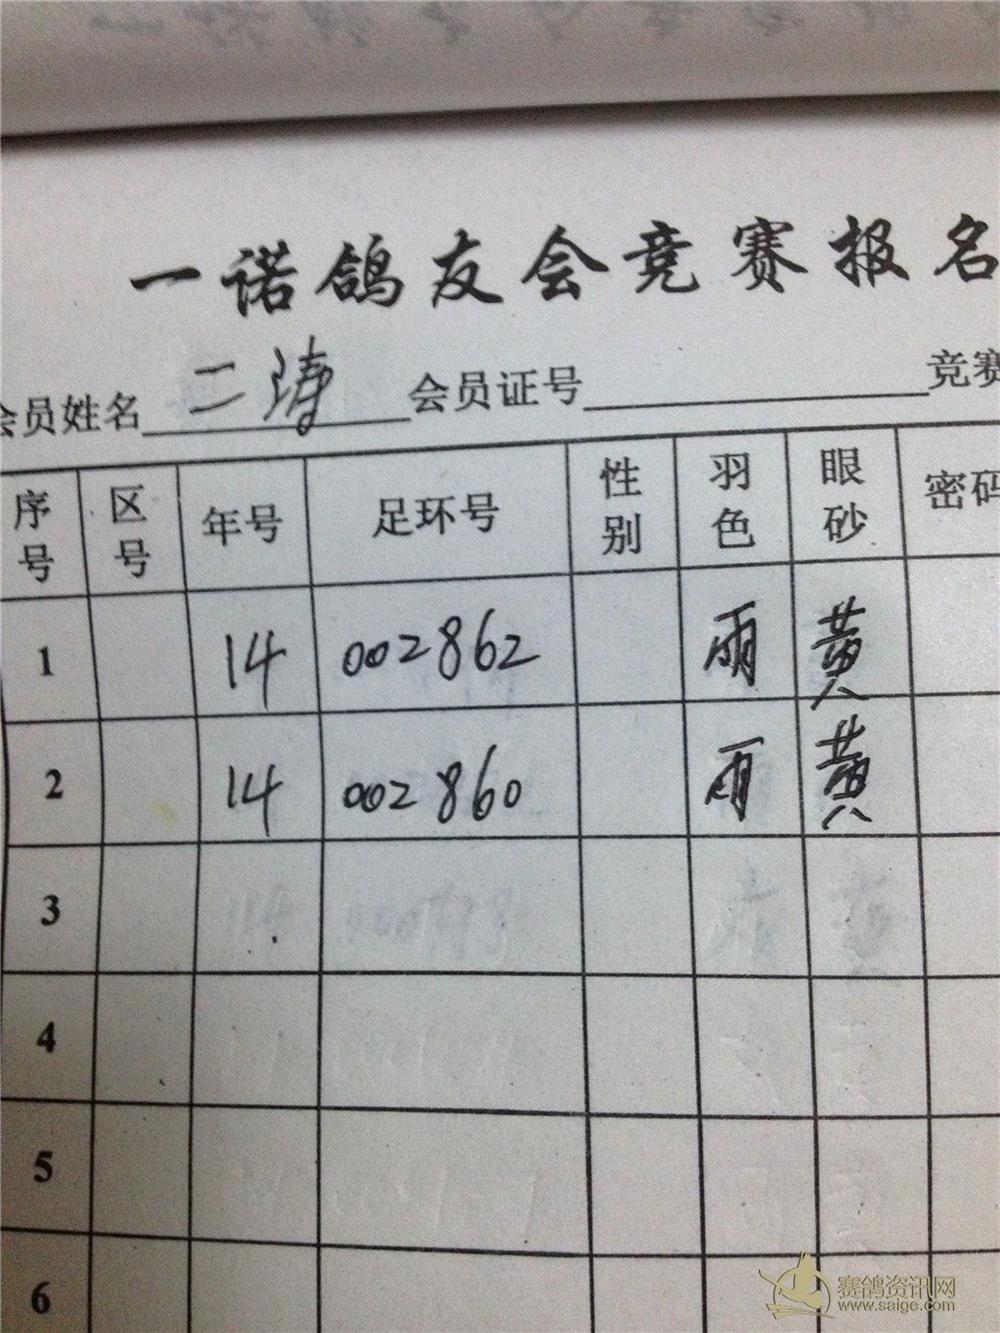 一诺鸽友会竞赛报名
会员姓名 二涛 会员证号 竞赛
序号 区号 年号 足环号 性别 羽色 眼砂 密码
1 14 002862 雨 黄
2 14 002860 雨 黄
3
4
5
6
赛鸽资讯网
www.saige.com